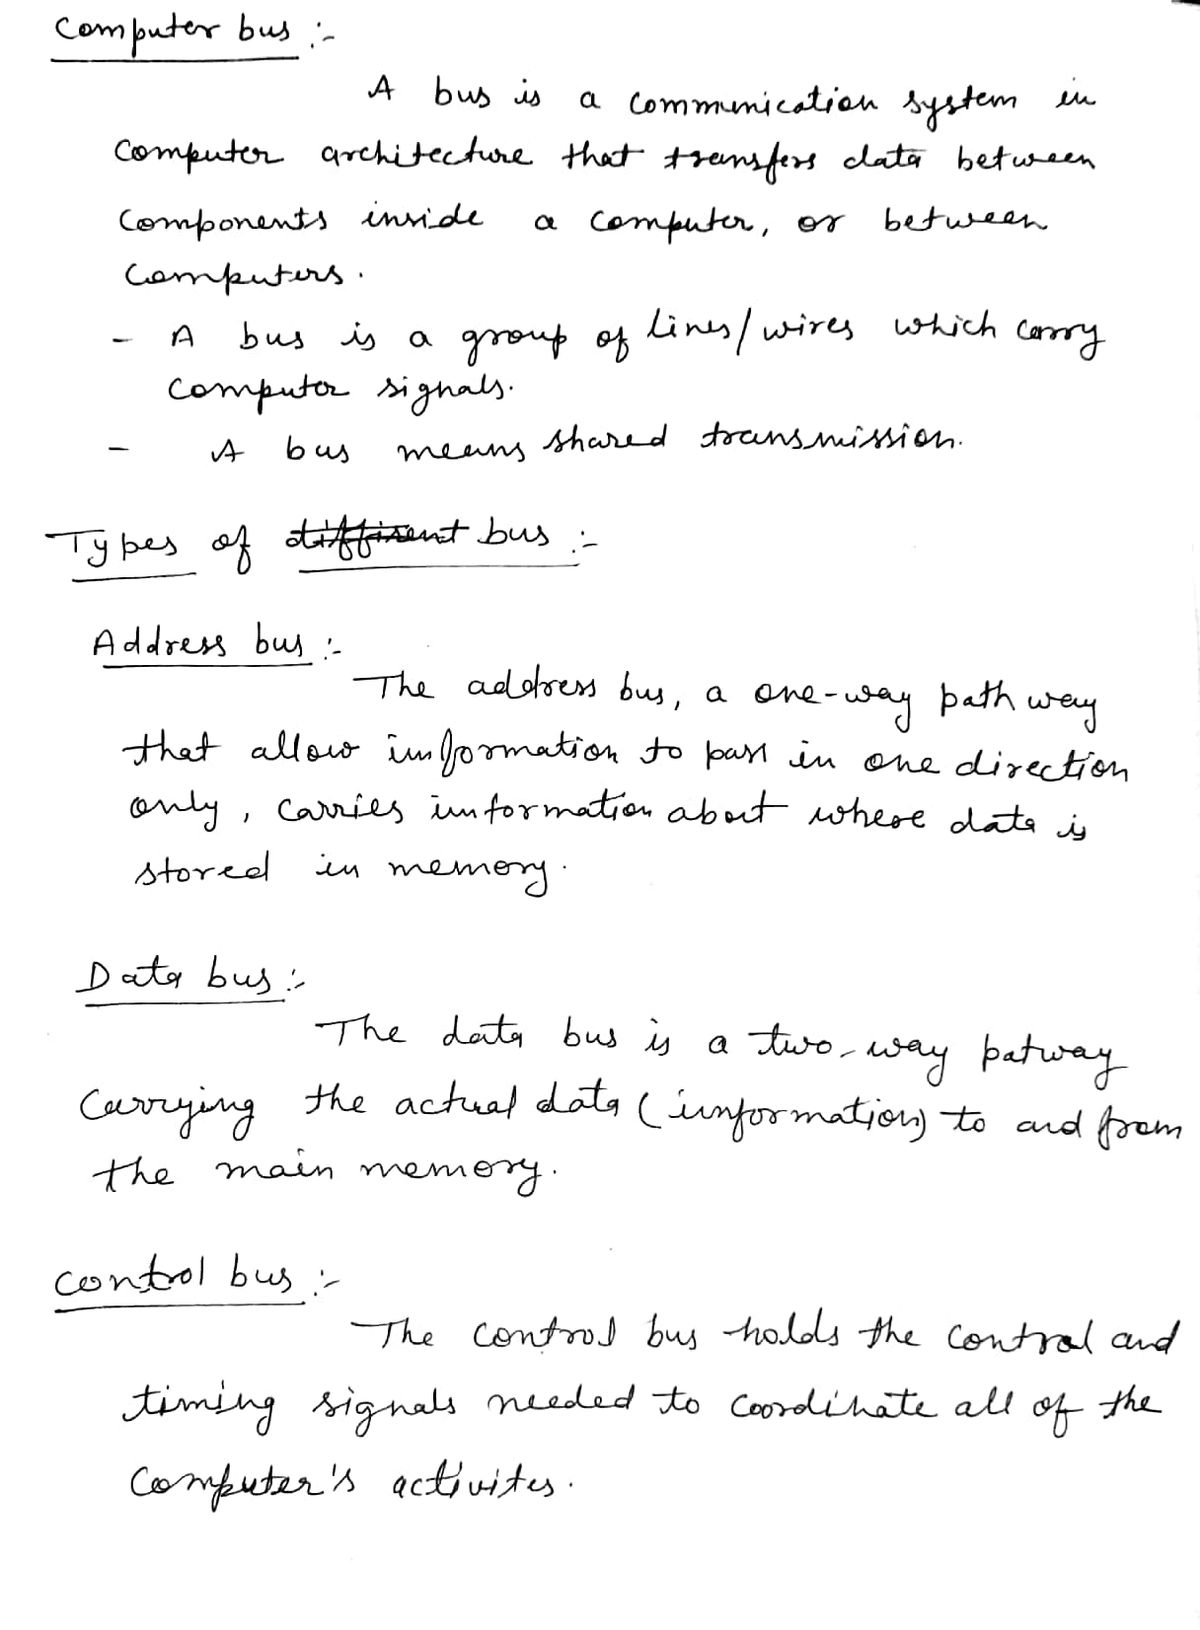 Computer bus :-
A bus is a communication system in
computer architecture that transfers data between
components inside a computer, or between
computers.
- A bus is a group of lines/wires which carry
computer signals.
- A bus means shared transmission.
Types of different bus :-
Address bus :-
The address bus, a one-way pathway
that allow information to pass in one direction
only, carries information about where data is
stored in memory.
Data bus :-
The data bus is a two-way patway
carrying the actual data (information) to and from
the main memory.
Control bus :-
The control bus holds the control and
timing signals needed to coordinate all of the
computer's activites.